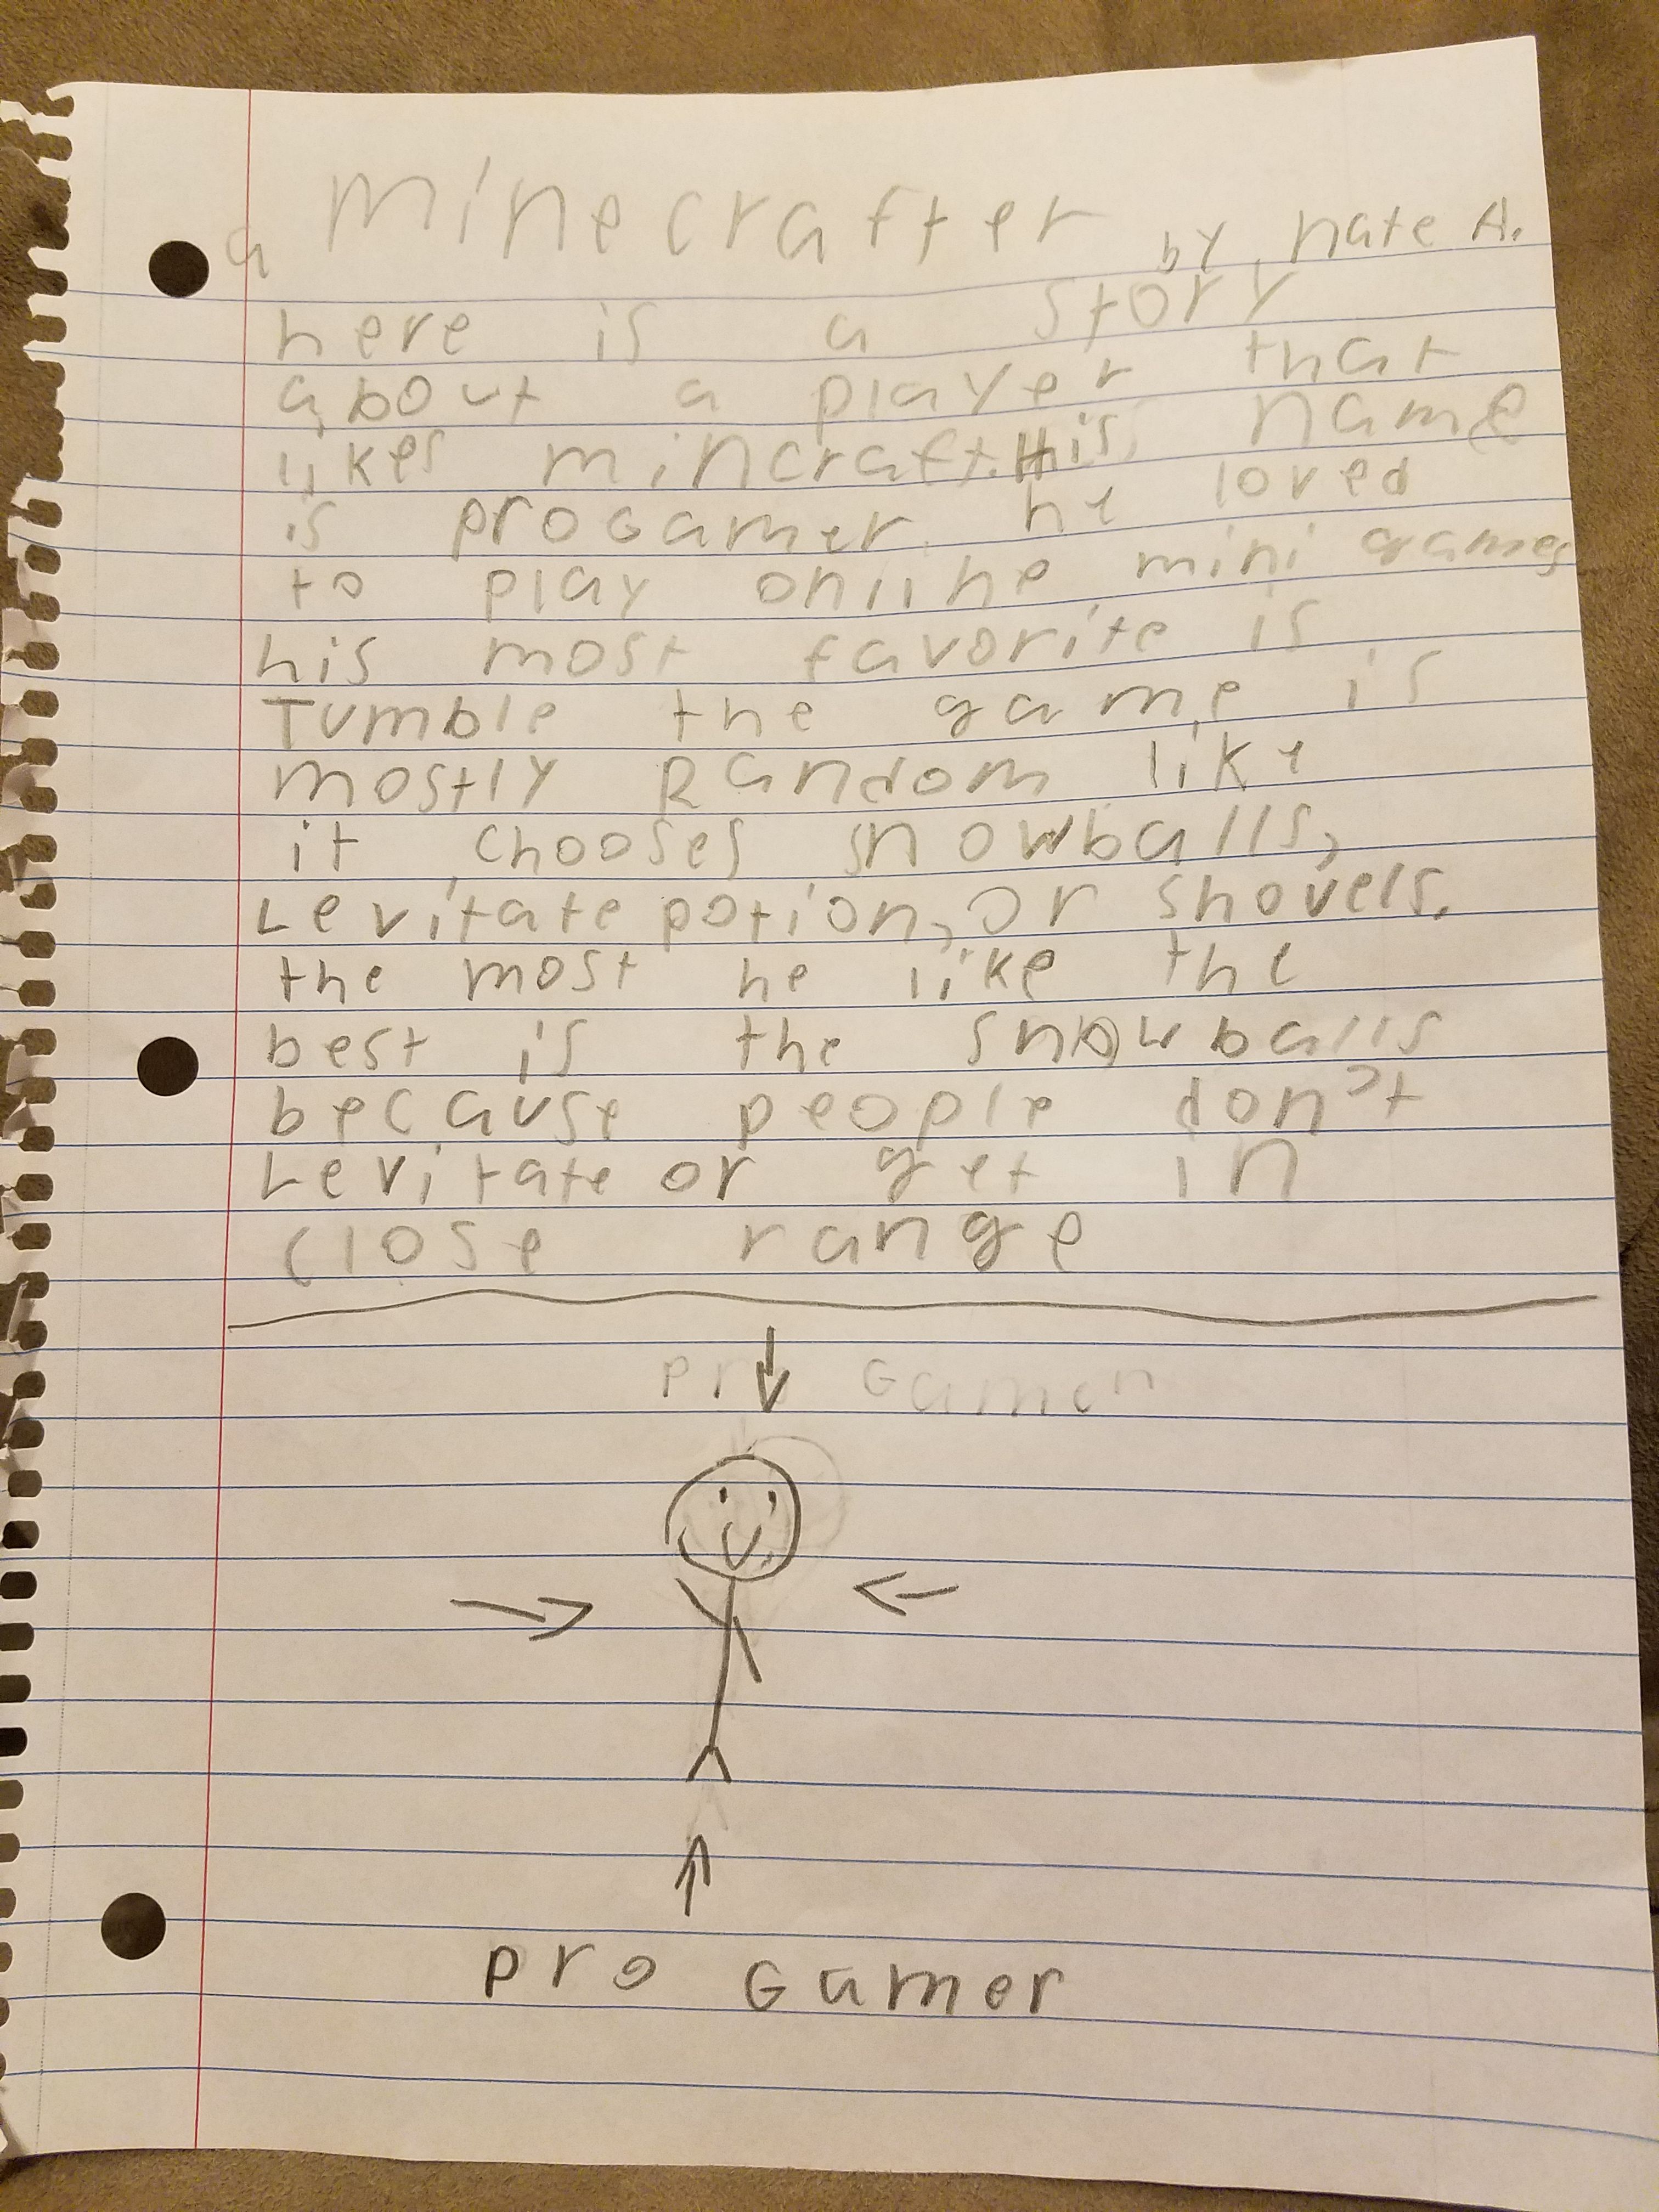 a Minecrafter by nate A.
here is a story
about a player that
likes mincraft. His name
is proGamer. he loved
to play online mini games
his most favorite is
Tumble the game is
mostly Random like
it chooses snowballs,
Levitate potion, or shovels.
the most he like the
best is the snowballs
because people don't
Levitate or get in
close range
pro Gamer